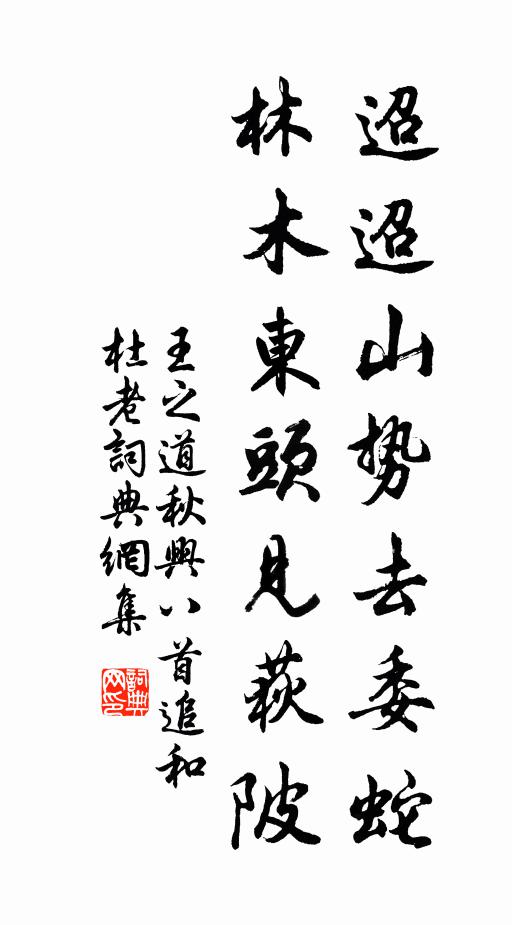 迢迢山势去委蛇
林木東頭見萩陂
王之道秋興八首追和
杜老詞典網集
詞典
网印